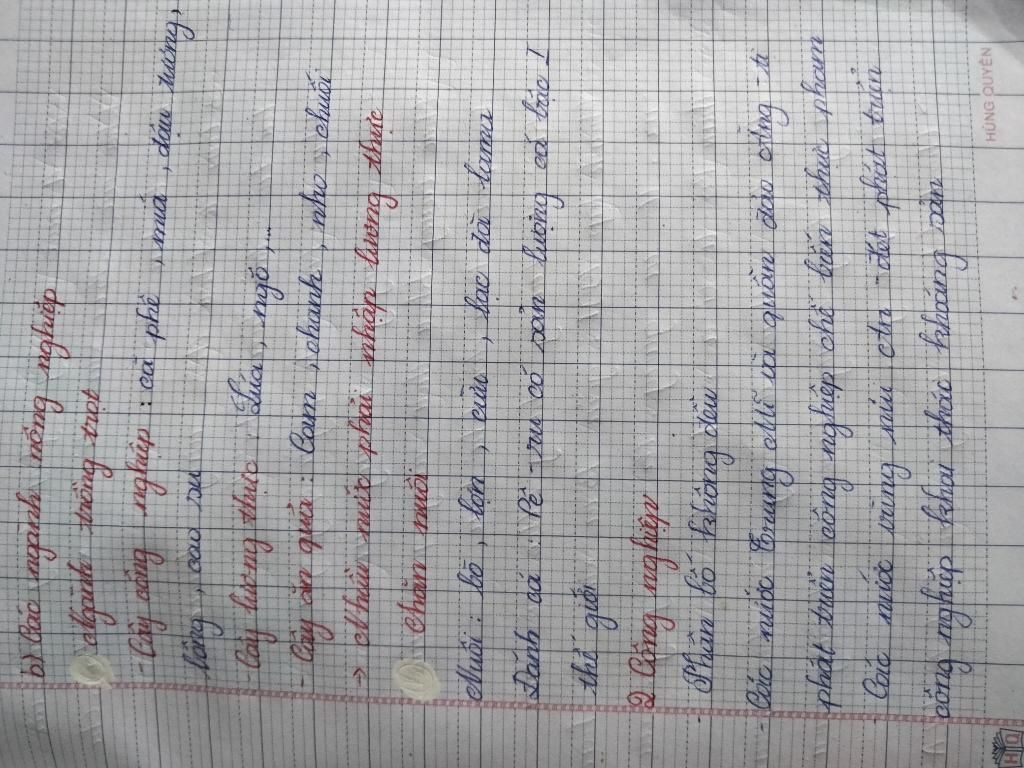 b) Các ngành nông nghiệp
Ngành trồng trọt
- Cây công nghiệp : cà phê , mía , dậu tương,
bông , cao su
- Cây lương thực : Lúa, ngô,...
- Cây ăn quả : Cam , chanh , nho , chuối
→ Nhiều nước phải nhập lương thực
Chăn nuôi
Nuôi : bò , lợn , cừu , lạc đà lama
Đánh cá : Pê - ru có sản lượng cá bậc 1
thế giới
2 Công nghiệp
- Phân bố không đều
- Các nước Trung Mĩ và quần đảo ăng - ti
phát triển công nghiệp chế biến thực phẩm
- Các nước vùng núi an - đet phát triển
công nghiệp khai thác khoáng sản
HÙNG QUYÊN
HQ